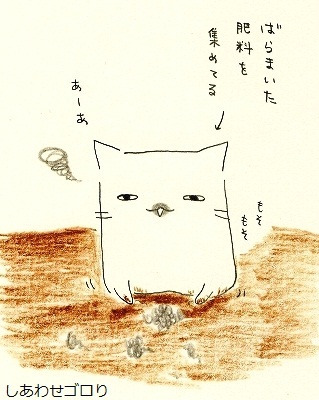 ばらまいた
肥料を
集めてる
あーあ
もそ
もそ
しあわせゴロり